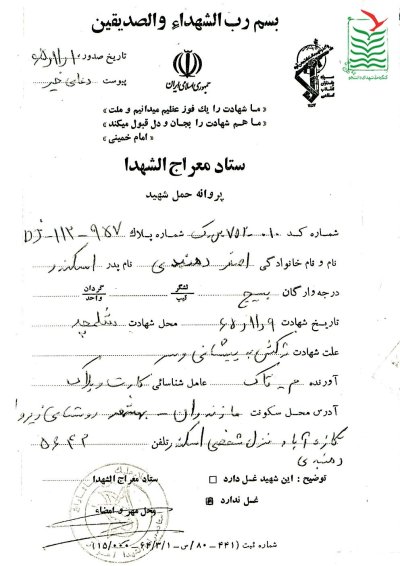 بسم رب الشهداء والصدیقین
تاریخ صدور: ۶۵/۱۱/۱۰
پیوست دعای خیر
جمهوری اسلامی ایران
«ما شهادت را یك فوز عظیم میدانیم و ملت»
«ما هم شهادت را بجان و دل قبول میكند»
«امام خمینی»
ستاد معراج الشهدا
پروانه حمل شهید
شماره کد ۰۱۰-۷۵۲ شماره پلاك ۹۵۷-۱۱۳-DJ
نام و نام خانوادگی اصغر دهنبدی نام پدر اسکندر
درجه و ارگان بسیج لشگر تیپ گردان واحد
تاریخ شهادت ۶۵/۱۱/۹ محل شهادت شلمچه
علت شهادت ترکش به پیشانی و سر
آورنده عامل شناسائی کارت و پلاک
آدرس محل سکونت مازندران - بهشهر روستای
منزل شخصی اسکندر تلفن ۵۶۴۲
دهنبدی
توضیح: این شهید غسل دارد
غسل ندارد
ستاد معراج الشهدا
محل مهر و امضاء
شماره ثبت (۴۴۱-۸۰/ص-۶۴/۳/۱) (۱۵/۰۰۰)